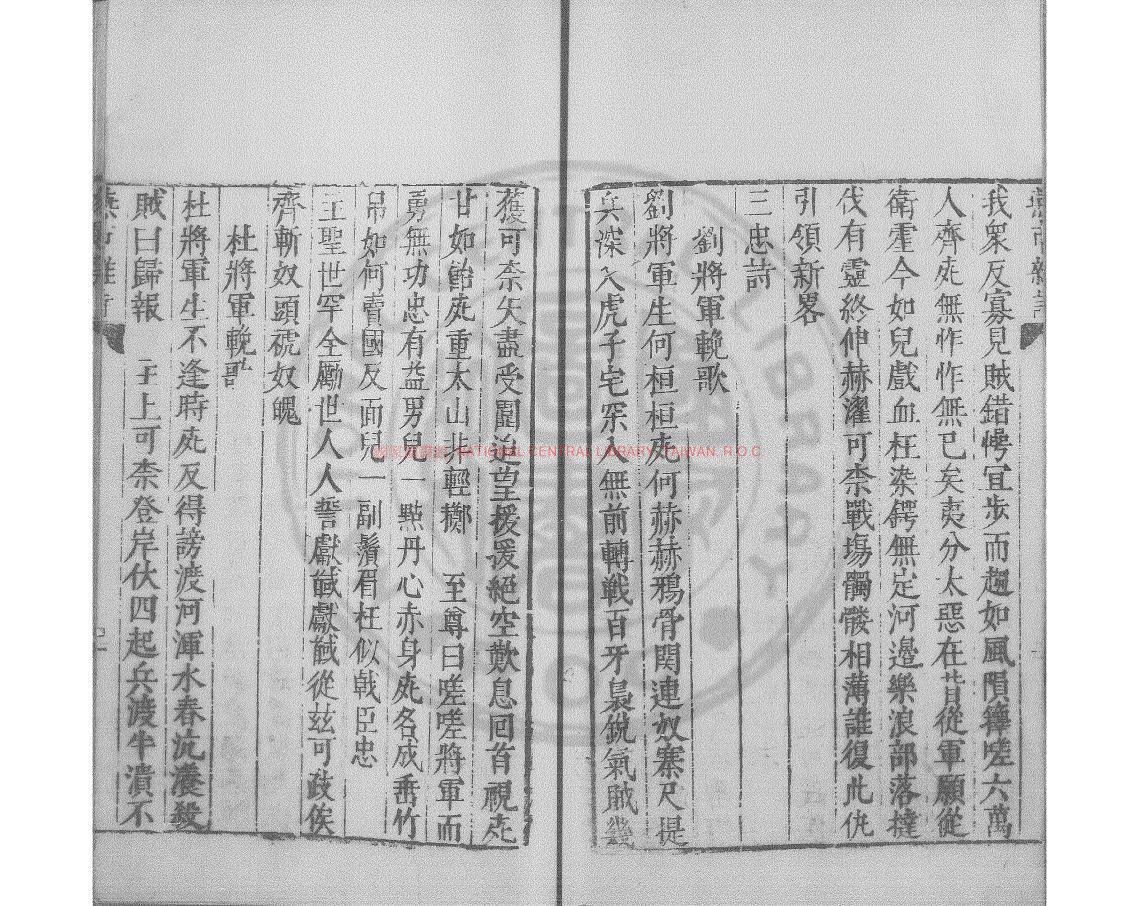 我衆反寡見賊錯愕宜步而趨如風隕籜嗟六萬
人齊死無怍怍無已矣夷分太惡在昔從軍願從
衛霍今如兒戲血枉染鍔無定河邊樂浪部落撻
伐有靈終伸赫濯可柰戰塲髑髏相薄誰復此仇
引領新畧
三忠詩
劉將軍輓歌
劉將軍生何桓桓死何赫赫鴉骨関連奴寨尺提
兵深入虎子宅深入無前轉戰百牙梟銳氣賊幾
獲可柰矢盡受圍迫望援援絕空歎息回首視死
甘如飴死重太山非輕擲 至尊曰嗟嗟將軍而
勇無功忠有益男兒一㸃丹心赤身死名成垂竹
帛如何賣國反面兒一副鬚眉枉似戟臣忠
王聖世罕全勵世人人誓獻馘獻馘從兹可跂俟
齊斬奴頭褫奴魄
杜將軍輓歌
杜將軍生不逢時死反得謗渡河渾水春流濃殺
賊曰歸報 主上可柰登岸伏四起兵渡半潰不
國家圖書館 NATIONAL CENTRAL LIBRARY, TAIWAN, R.O.C